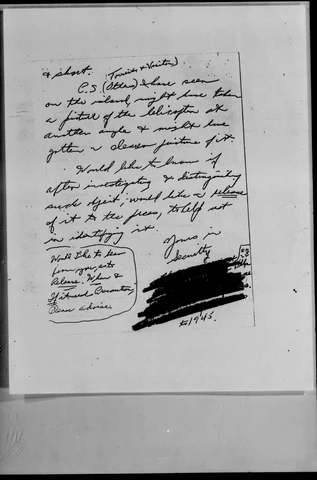 & short. (Tourists & Visitors)
C.S (Others) I have seen
on the island, might have taken
a picture of the helicopter at
another angle & might have
gotten a cleaner picture of it.
Would like to know if
after investigating & distinguishing
such object, would like a release
of it to the press, to help out
in identifying it.
Yours in
Security
Would like to hear
from you, as to
Release, When &
If
Please advise.
to 1945.